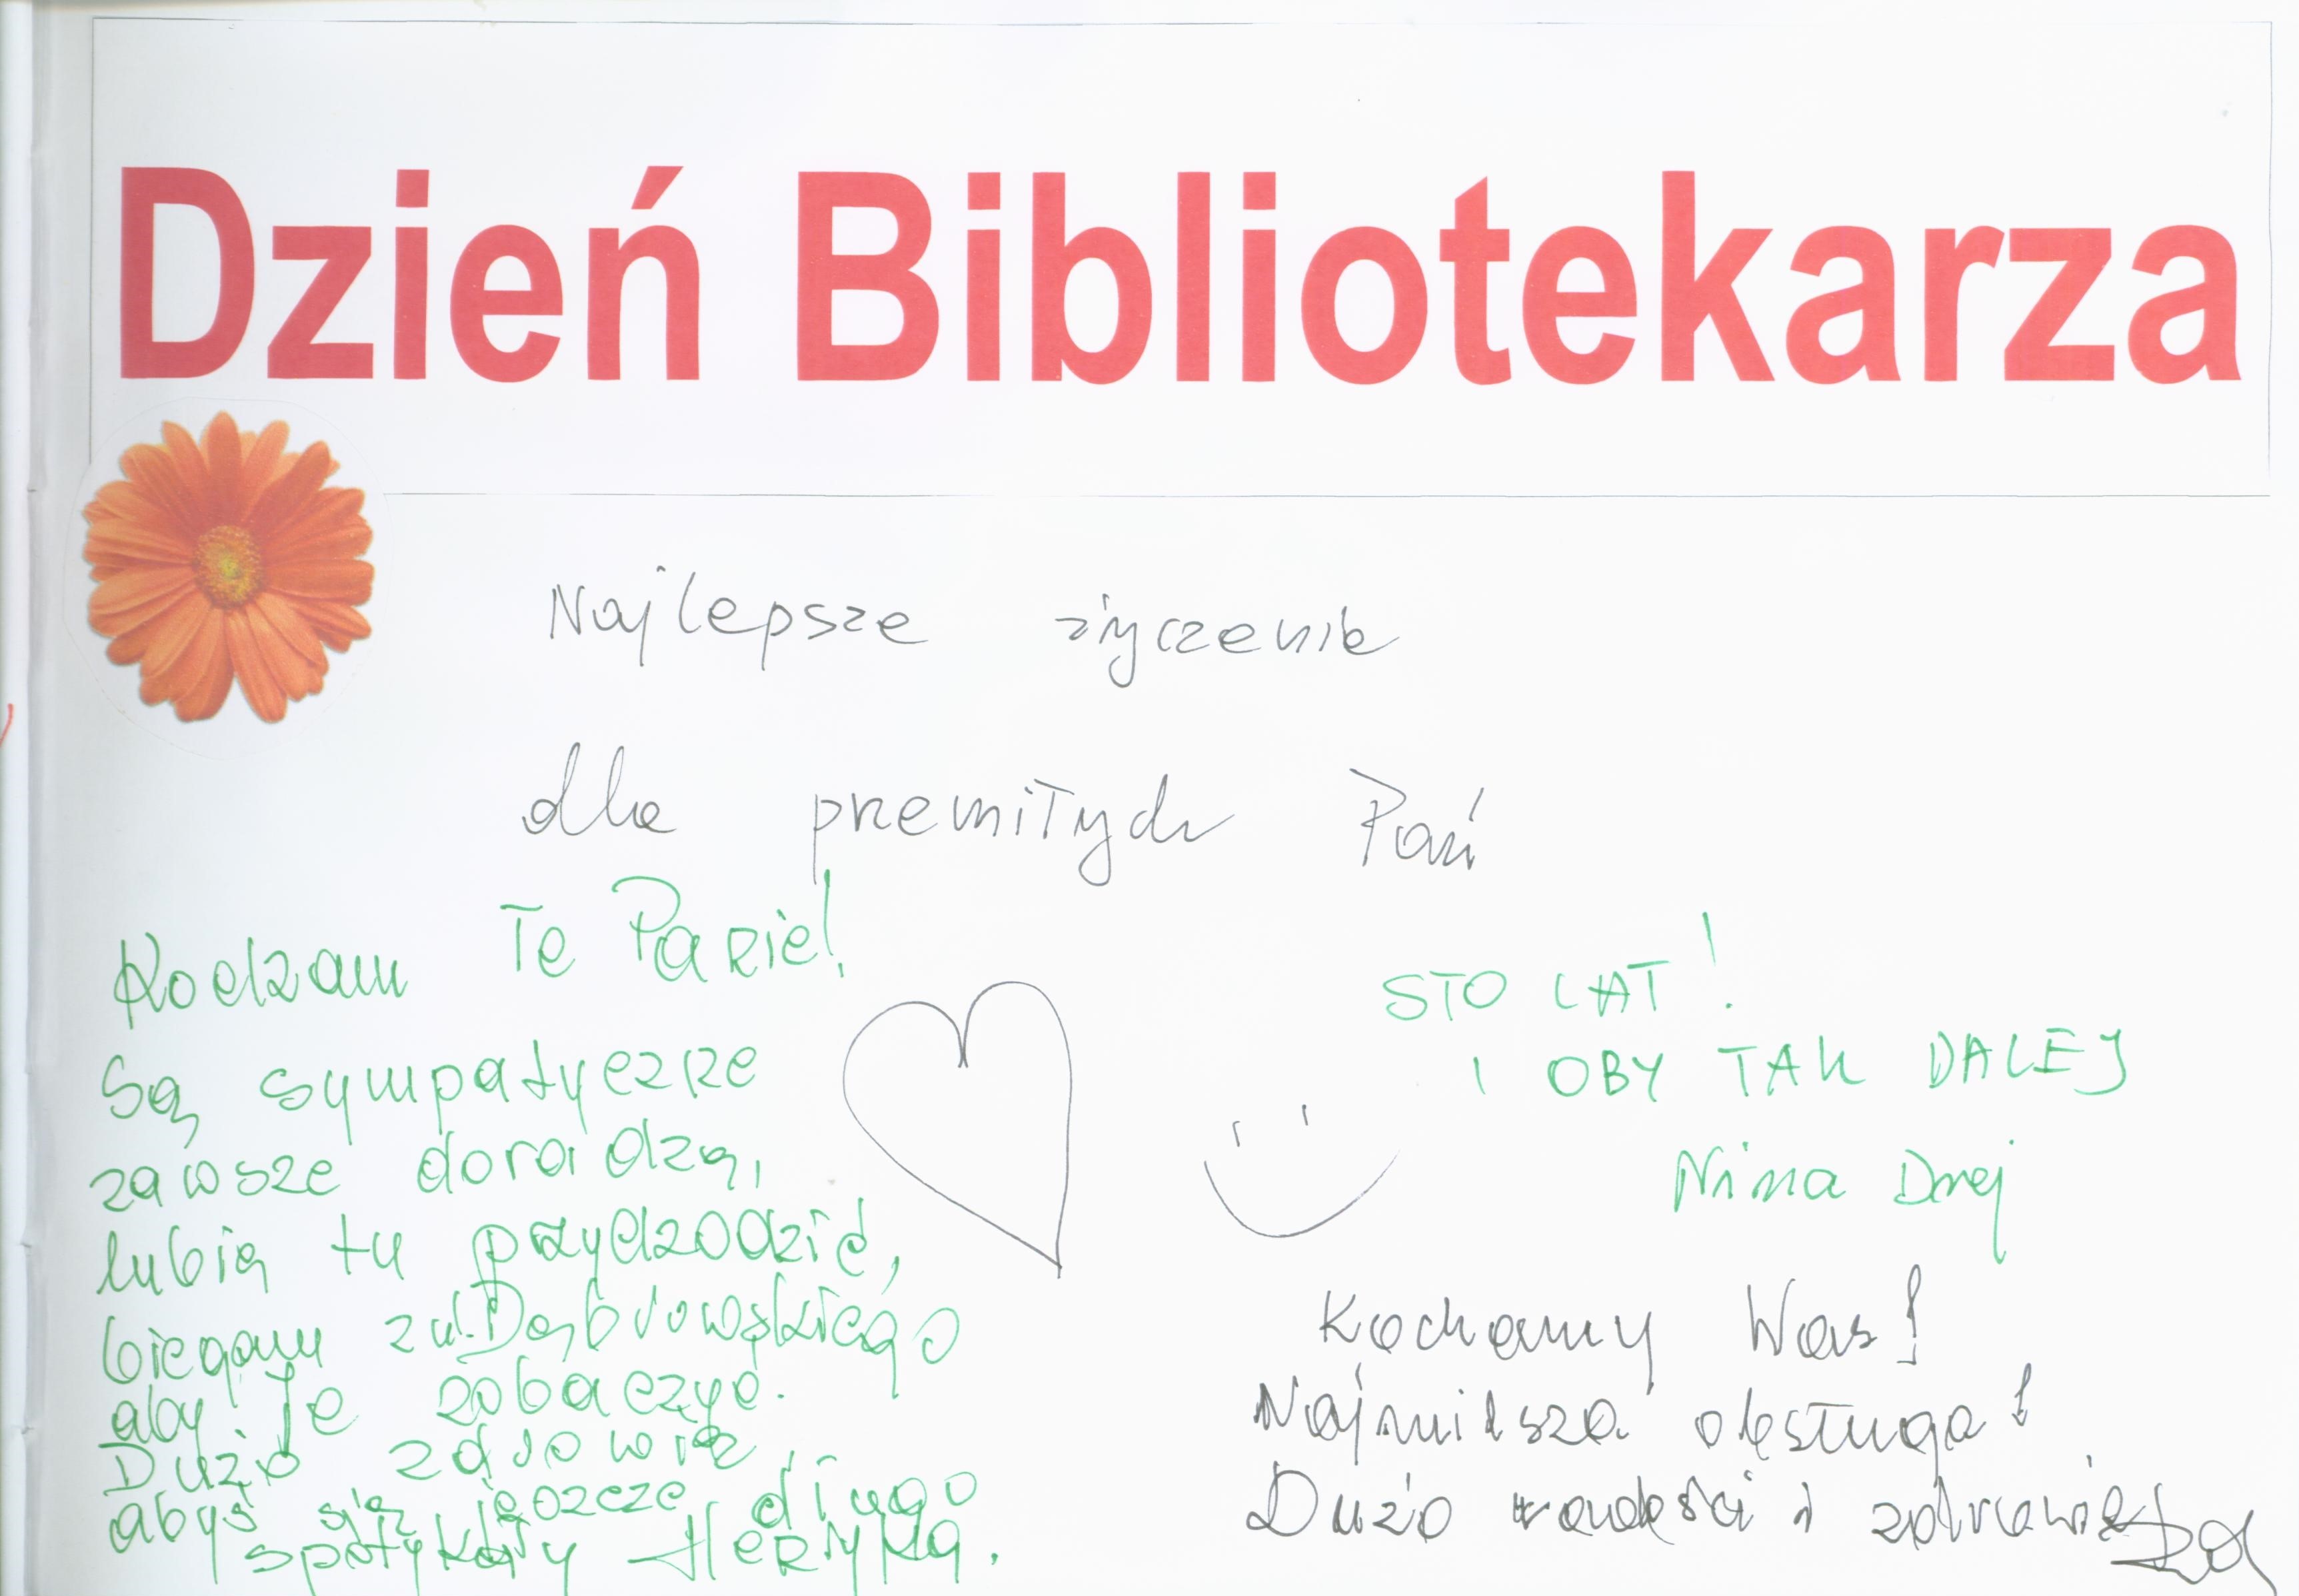 Dzień Bibliotekarza
Najlepsze życzenie
dla przemiłych Pań
Kocham Te Panie!
Są sympatyczne
zawsze doradzą,
lubię tu przychodzić,
biegam z ul. Dąbrowskiego
aby je zobaczyć.
Dużo zdrowia
abyś się jeszcze długo
spotykały Henryka.
STO LAT!
I OBY TAK DALEJ
Nina Drej
Kochamy Was!
Najmilsza obsługa!
Dużo radości i zdrowia